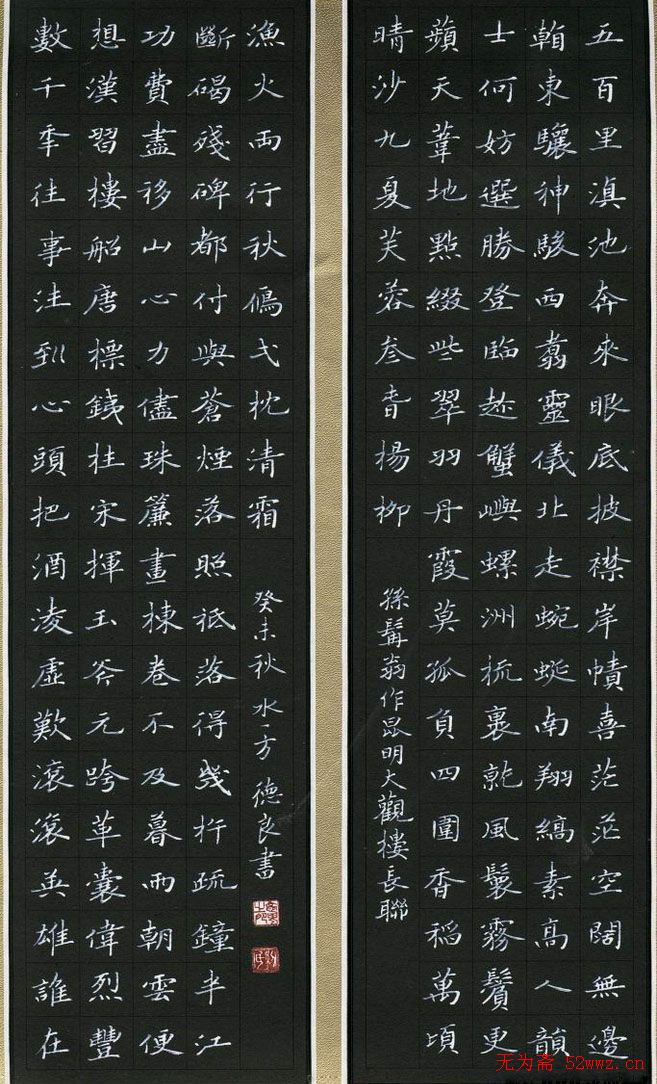 五百里滇池奔來眼底披襟岸幘喜茫茫空闊無邊
看東驤神駿西翥靈儀北走蜿蜒南翔縞素高人韻
士何妨選勝登臨趁蟹嶼螺洲梳裹就風鬟霧鬢更
蘋天葦地點綴些翠羽丹霞莫孤負四圍香稻萬頃
晴沙九夏芙蓉叁春楊柳
孫髯翁作昆明大觀樓長聯
數千秊往事注到心頭把酒淩虛歎滾滾英雄誰在
想漢習樓船唐標銕柱宋揮玉斧元跨革囊偉烈豐
功費盡移山心力儘珠簾畫棟卷不及暮雨朝雲便
斷碣殘碑都付與蒼煙落照祇落得幾杵疏鐘半江
漁火兩行秋鴈弌枕清霜
癸未秋水一方德良書
无为斋 52wwz.cn